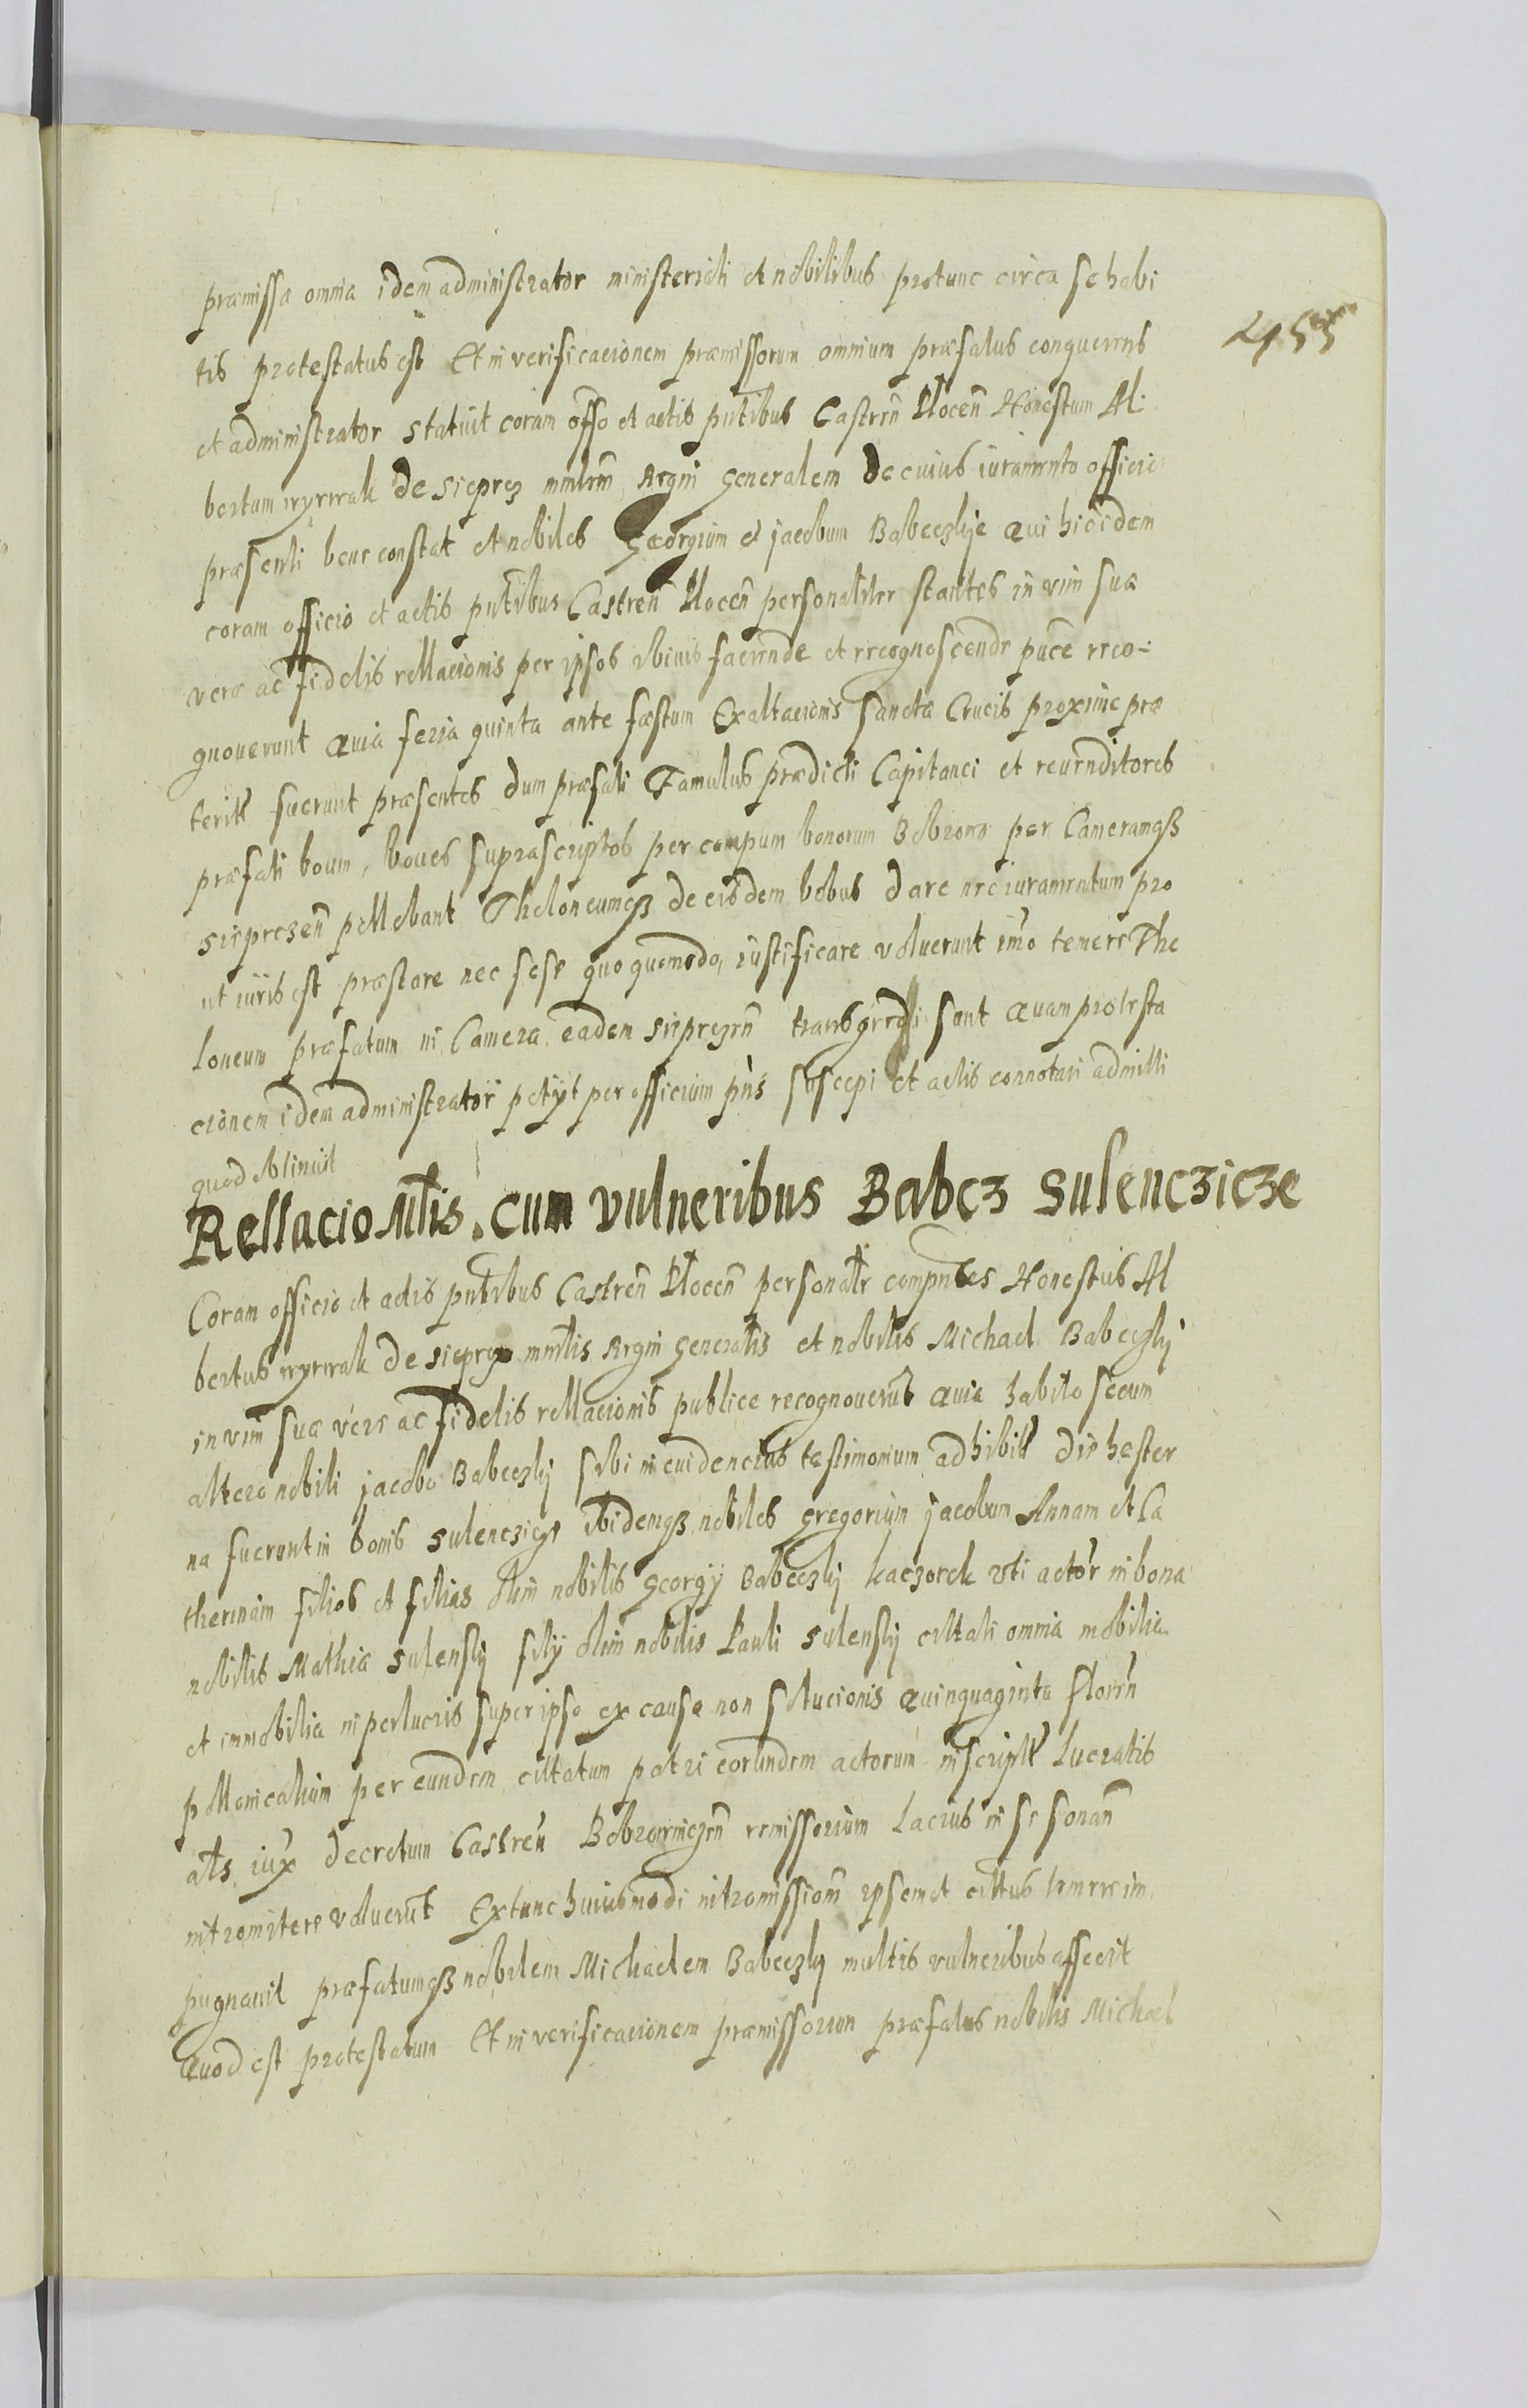 præmissa omnia idem administrator ministeriali et nobilibus protunc circa se habi
455
tis protestatus est Et in verificacionem præmissorum omnium præfatus conquerens
et administrator statuit coram offo et actis pntibus Castren Plocen Honestum Al:
bertum wyrwak de sieprcz mnlrm Regni Generalem de cuius iuramento officio
præsenti bene constat et nobiles Georgium et jacobum Babeczkÿe qui hic idem
coram officio et actis pntibus Castren Plocen personaliter stantes in vim suæ
veræ ac fidelis rellacionis per ipsos ibivis faciende et recognoscende puce reco:
gnouerunt quia feria quinta ante fæstum Exaltacionis Sanctæ Crucis proxime præ
terit fuerunt præsentes dum præfati Famulus prædicti Capitanei et reuenditores
præfati boum, boues suprascriptos per campum bonorum Bobrowo per Cameramqß
sieprczen pellebant Theloneumqß de eisdem bobus dare nec iuramentum pro
ut iuris est præstare nec sese quoquomodo, iustificare voluerunt imo temere The
loneum præfatum in Camera eadem sieprczen transgressi sunt quam protesta
cionem idem administrator petyt per officium pns suscepi et actis connotari admitti
quod obtinuit
Rellacio Mlis. cum vulneribus Babcz Sulenczicze
Coram officio et actis pntibus Castren Plocen personalr compntes Honestus Al
bertus wyrwak de sieprcz mnrlis Regni Generalis et nobilis Michael Babeczkÿ
in vim suæ veræ ac fidelis rellacionis publice recognouerut quia habito secum
altero nobili jacobo Babeczkÿ sibi in euidencius testimonium adhibit die hester
na fuerunt in bonis sulenczicze ibidemqß nobiles Gregorium jacobum Annam et Ca
therinam filios et filias olim nobilis Georgÿ Babeczkÿ kaczorek vti actor in bona
nobilis Mathiæ Sulenskÿ filÿ olim nobilis Pauli Sulenskÿ cittati omnia mobilia
et immobilia in perlucris super ipso ex causa non solucionis quinquaginta Floren
pollonicalium per eundem cittatum patri eorundem actorum inscript lucratis
als iux decretum Castren Bobrownicen remissorium lacius in se sonan
intromitere voluerut Extunc huiusmodi intromissiom ipsemet cittus temere im
pugnauit præfatumqß nobilem Michaelem Babeczkÿ multis vulneribus affecit
Quod est protestatum Et in verificacionem præmissorum præfatus nobilis Michael